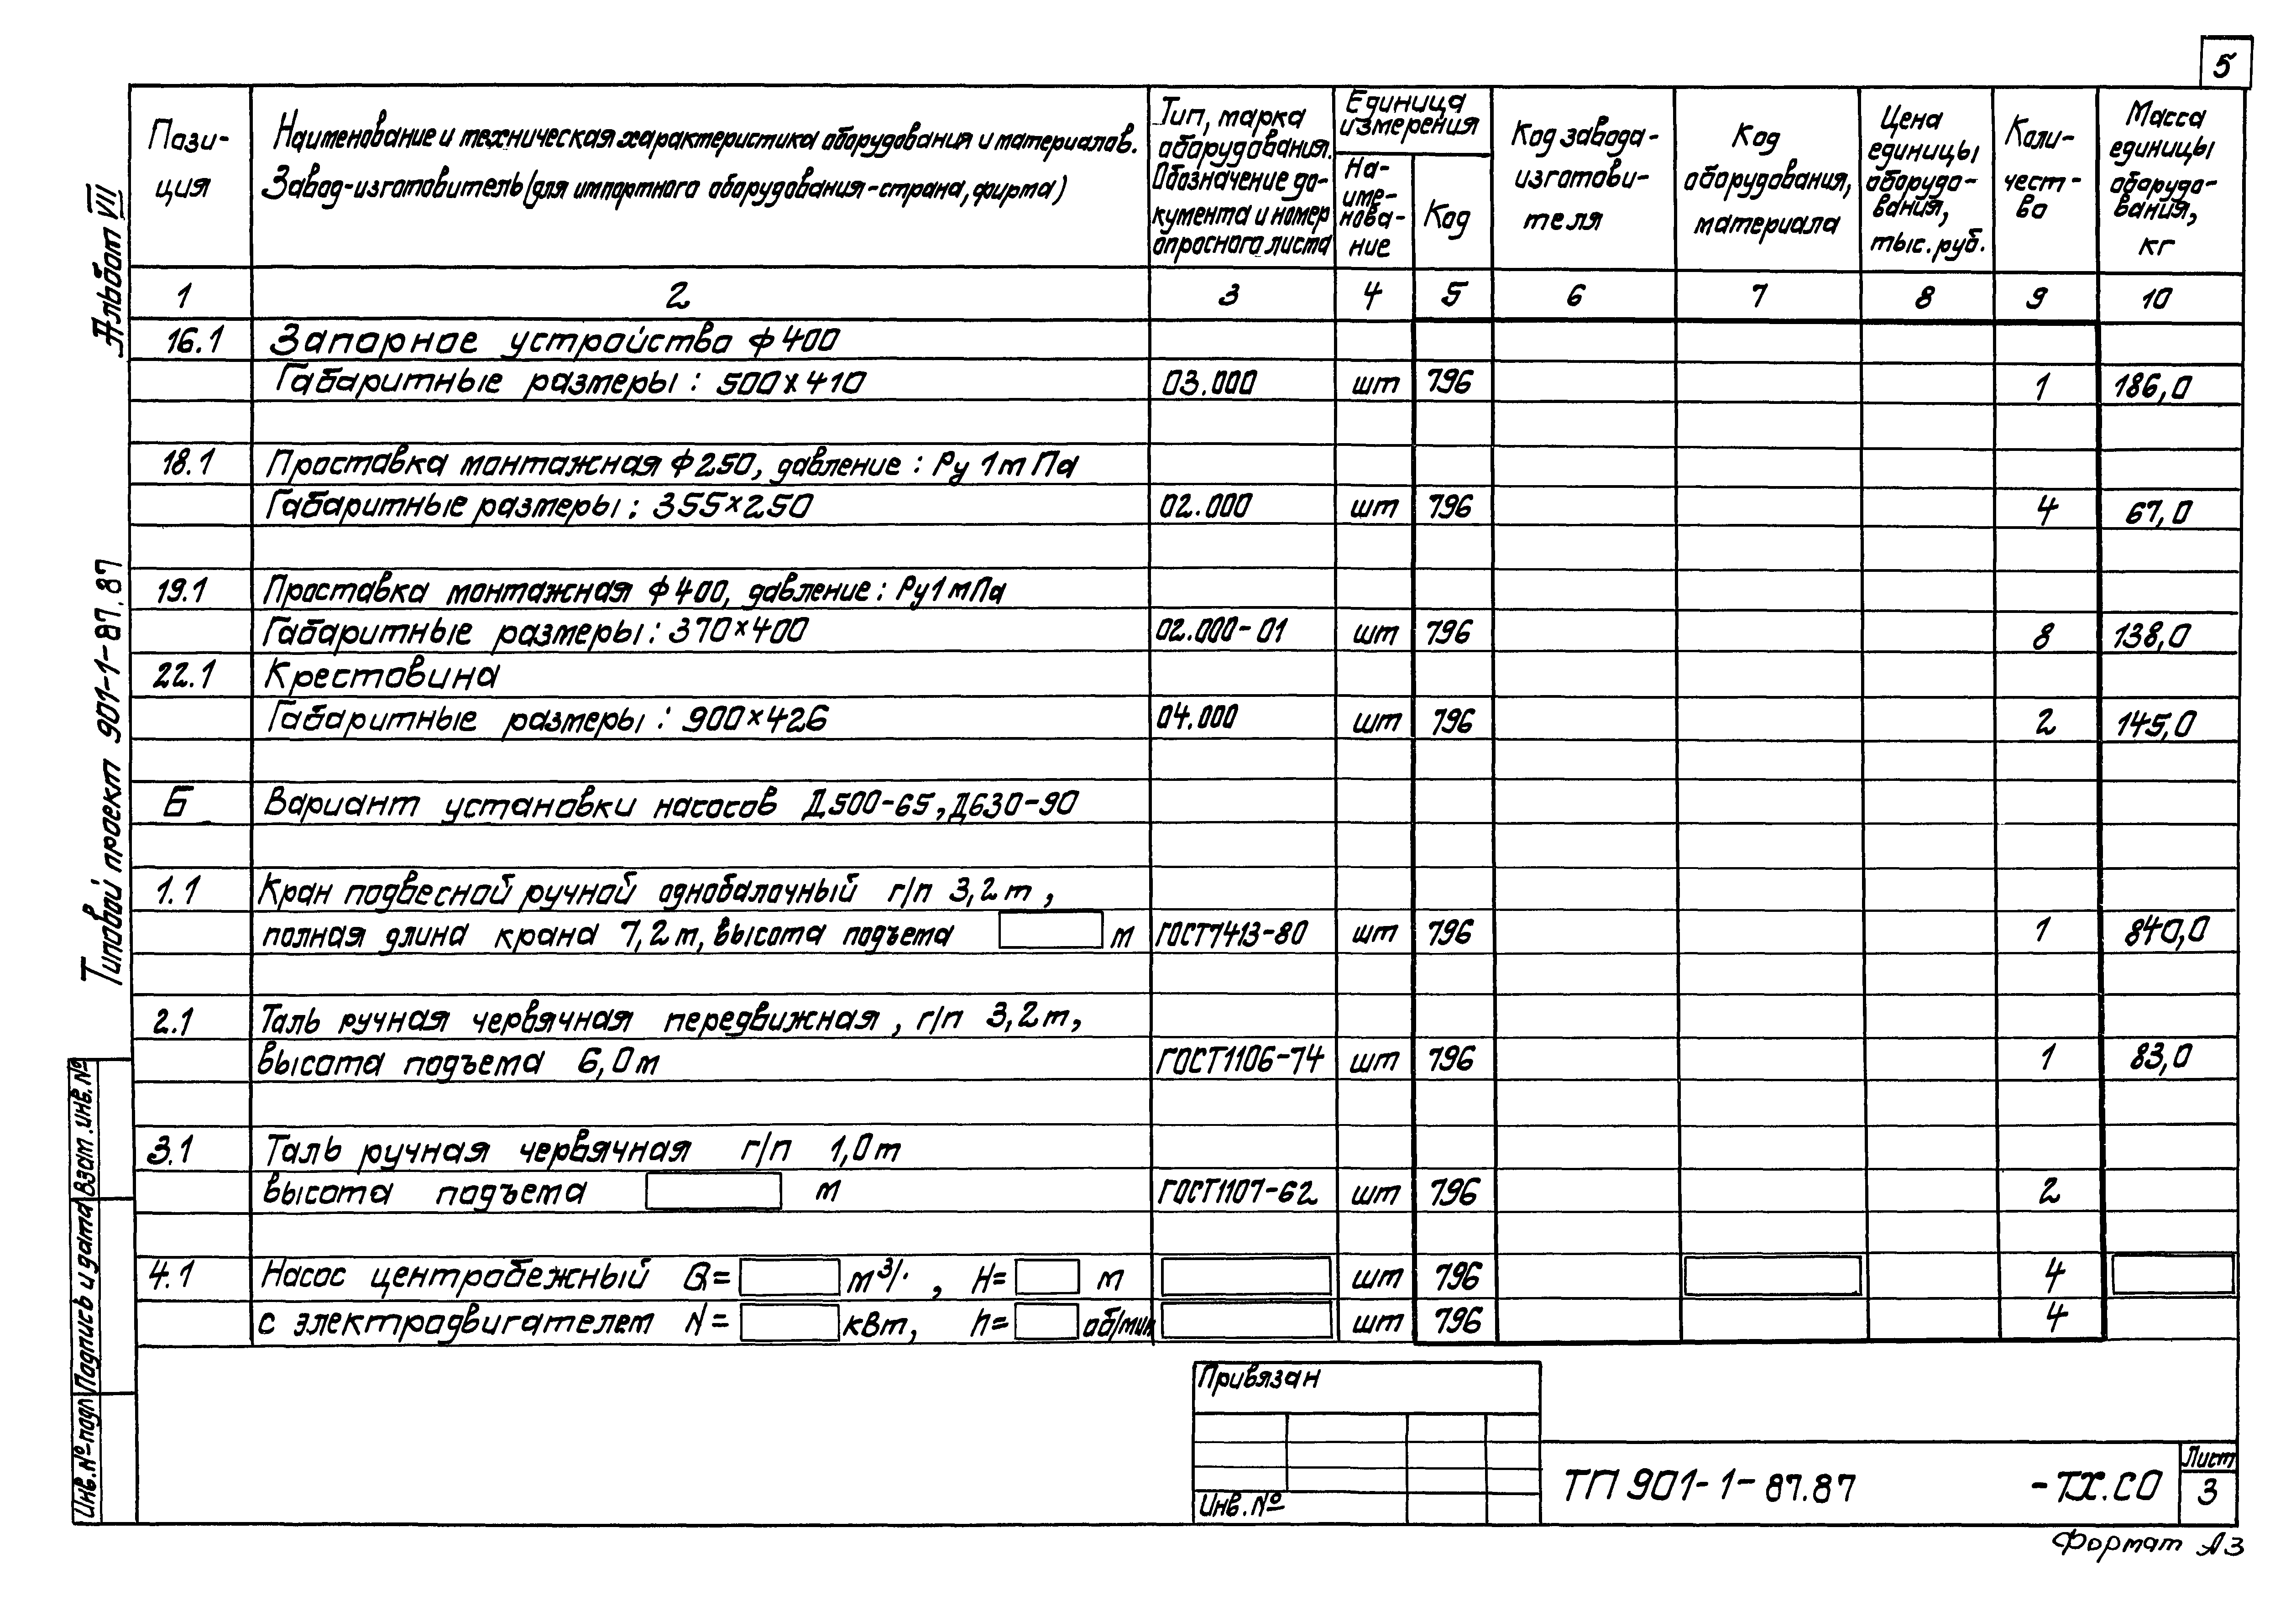 5
Пози-
ция
Наименование и техническая характеристика оборудования и материалов.
Завод-изготовитель (для импортного оборудования-страна, фирма)
Тип, марка
оборудования.
Обозначение до-
кумента и номер
опросного листа
Единица
измерения
На-
име-
нова-
ние
Код
Код завода-
изготови-
теля
Код
оборудования,
материала
Цена
единицы
оборудо-
вания,
тыс. руб.
Коли-
чест-
во
Масса
единицы
оборудо-
вания,
кг
1 2 3 4 5 6 7 8 9 10
16.1 Запорное устройство ф400
Габаритные размеры: 500×410 03.000 шт 796 1 186,0
18.1 Проставка монтажная ф250, давление: Ру 1мПа
Габаритные размеры: 355×250 02.000 шт 796 4 67,0
19.1 Проставка монтажная ф400, давление: Ру1мПа
Габаритные размеры: 370×400 02.000-01 шт 796 8 138,0
22.1 Крестовина
Габаритные размеры: 900×426 04.000 шт 796 2 145,0
Б Вариант установки насосов Д500-65, Д630-90
1.1 Кран подвесной ручной однобалочный г/п 3,2т,
полная длина крана 7,2м, высота подъема м ГОСТ7413-80 шт 796 1 840,0
2.1 Таль ручная червячная передвижная, г/п 3,2т,
высота подъема 6,0м ГОСТ1106-74 шт 796 1 83,0
3.1 Таль ручная червячная г/п 1,0т
высота подъема м ГОСТ1107-62 шт 796 2
4.1 Насос центробежный Q= м³/· , Н= м шт 796 4
с электродвигателем N= кВт, n= об/мин шт 796 4
Альбом VII
Типовой проект 901-1-87.87
Взам. инв. №
Подпись и дата
Инв. № подл
Привязан
Инв. №
ТП 901-1-87.87 -ТХ.СО
Лист
3
Формат А3